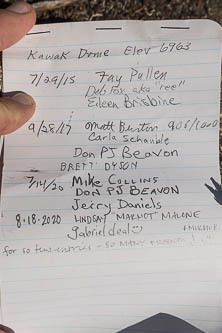 Kawak Dome Elev 6963
7/29/15 Fay Pullen
Deb Fox aka "ree"
Eileen Brisbine
9/28/17 Matt Burton
Carla Schauble
Don PJ Beavon
BRETT DYSON
7/14/20 Mike Collins
DON PJ BEAVON
Jerry Daniels
8-18-2020 LINDSAY "MARMOT" MALONE
gabriel deal
for so few entries - so many